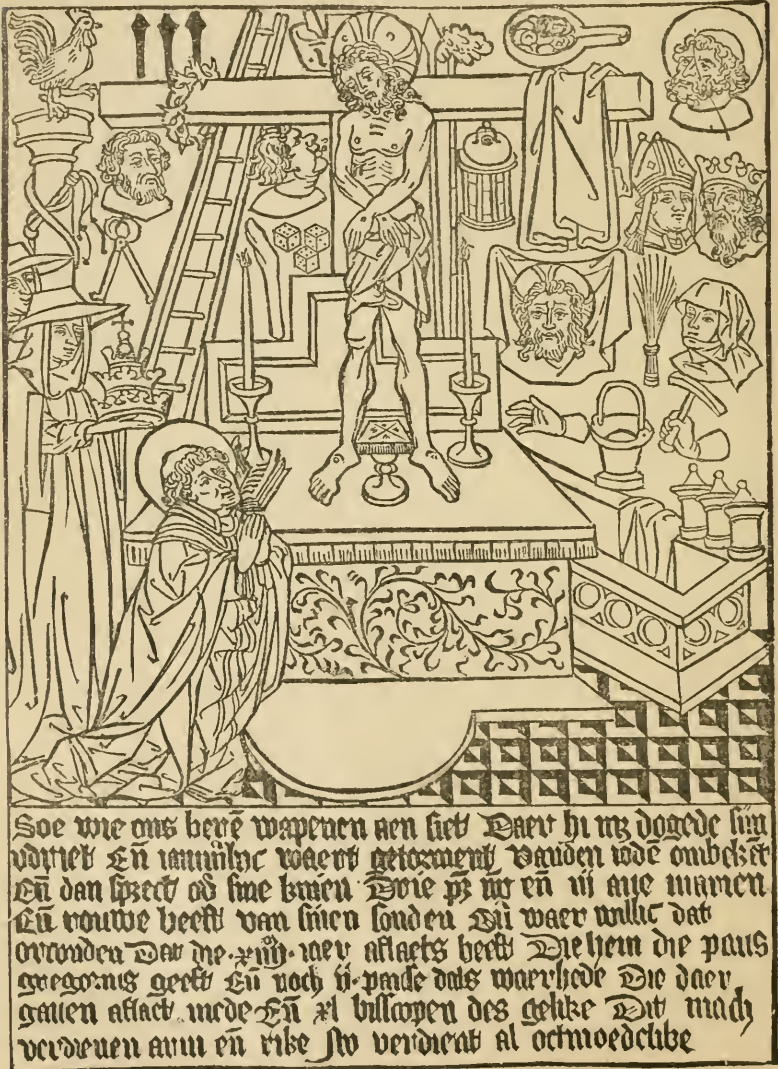 Soe wie ons herē wapenen aen siet Daer hi mꝫ dogede sijn
vdriet Eñ iamerlyc waert getorment Vanden iodē onbekēt
Eñ dan spreect oꝑ sine knien Drie pr̄ nr̄ eñ iij aue marien
Eñ rouwe heeft van sinen sonden Dit waer willic dat
orconden Dat die .xiiij. iaer aflaets heeft Die hem die paus
gregorius geeft Eñ noch ij. pause dats waerhede Die daer
gauen aflaet mede Eñ xl bisscopen des gelike Dit mach
verdienen arm eñ rike verdient al oetmoedelike